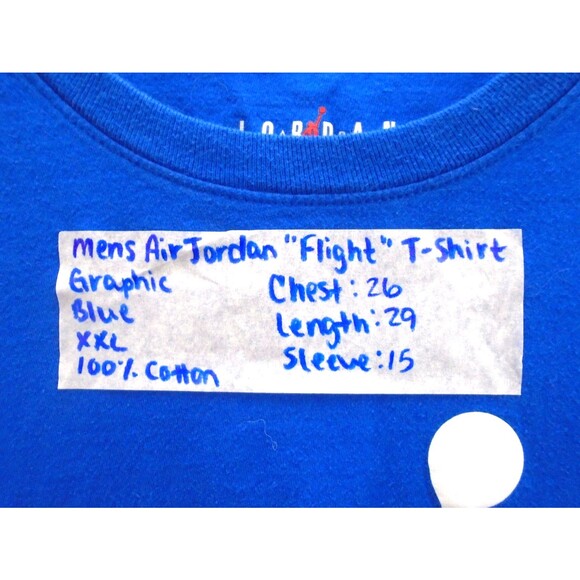 JORDAN
Mens Air Jordan "Flight" T-Shirt
Graphic
Blue
XXL
100% Cotton
Chest: 26
Length: 29
Sleeve: 15